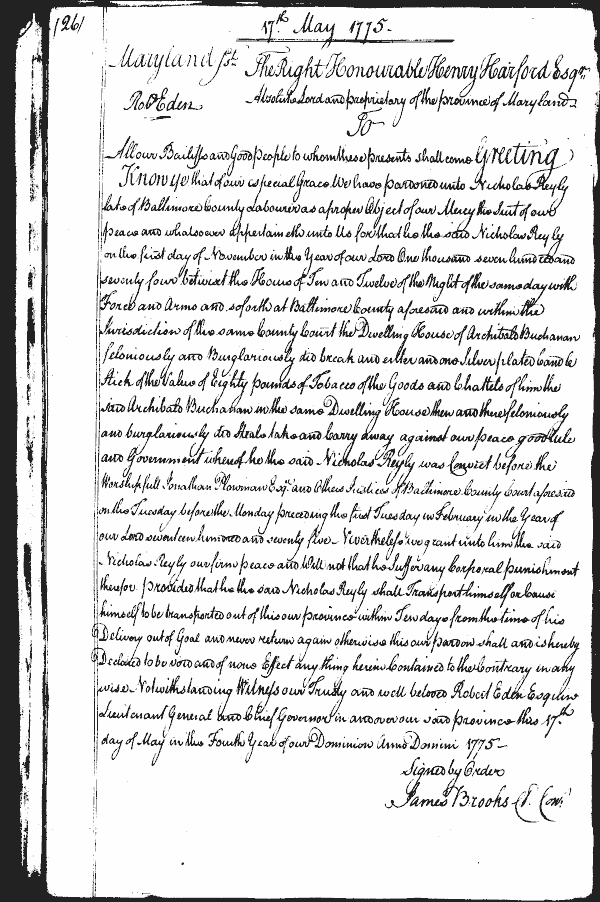 126
17th May 1775.
Maryland sst. The Right Honourable Henry Harford Esqr.
Robt Eden Absolute Lord and proprietary of the province of Maryland
To
All our Bailiffs and Good people to whom these presents shall come Greeting
Know ye that of our especial Grace We have pardoned unto Nicholas Reyly
late of Baltimore County Labourer as a proper Object of our Mercy the Suit of our
peace and whatsoever appertaineth unto Us for that he the said Nicholas Reyly
on the first day of November in the Year of our Lord One thousand seven hundred and
seventy four betwixt the Hours of Ten and Twelve of the Night of the same day with
Force and Arms and soforth at Baltimore County aforesaid and within the
Jurisdiction of the same County Court the Dwelling House of Archibald Buchanan
feloniously and Burglariously did break and enter and one Silver plated Candle
Stick of the Value of Eighty pounds of Tobacco of the Goods and Chattels of him the
said Archibald Buchanan in the same Dwelling House then and there feloniously
and burglariously did Steal take and Carry away against our peace good rule
and Government whereof he the said Nicholas Reyly was Convict before the
Worshipfull Jonathan Plowman Esqr. and Others Justices of Baltimore County Court aforesaid
on the Tuesday before the Monday preceding the first Tuesday in February in the Year of
our Lord seventeen hundred and seventy five. Nevertheless we grant unto him the said
Nicholas Reyly our firm peace and Will not that he Suffer any Corporal punishment
therefor provided that he the said Nicholas Reyly shall Transport himself or Cause
himself to be transported out of this our province within Ten days from the time of his
Delivery out of Goal and never return again otherwise this our pardon shall and is hereby
Declared to be void and of none Effect any thing herein Contained to the Contrary in any
wise Notwithstanding Witness our Trusty and well beloved Robert Eden Esquire
Lieutenant General and Chief Governor in and over our said province this 17th
day of May in the Fourth Year of our Dominion Anno Domini 1775
Signed by Order
James Brooks